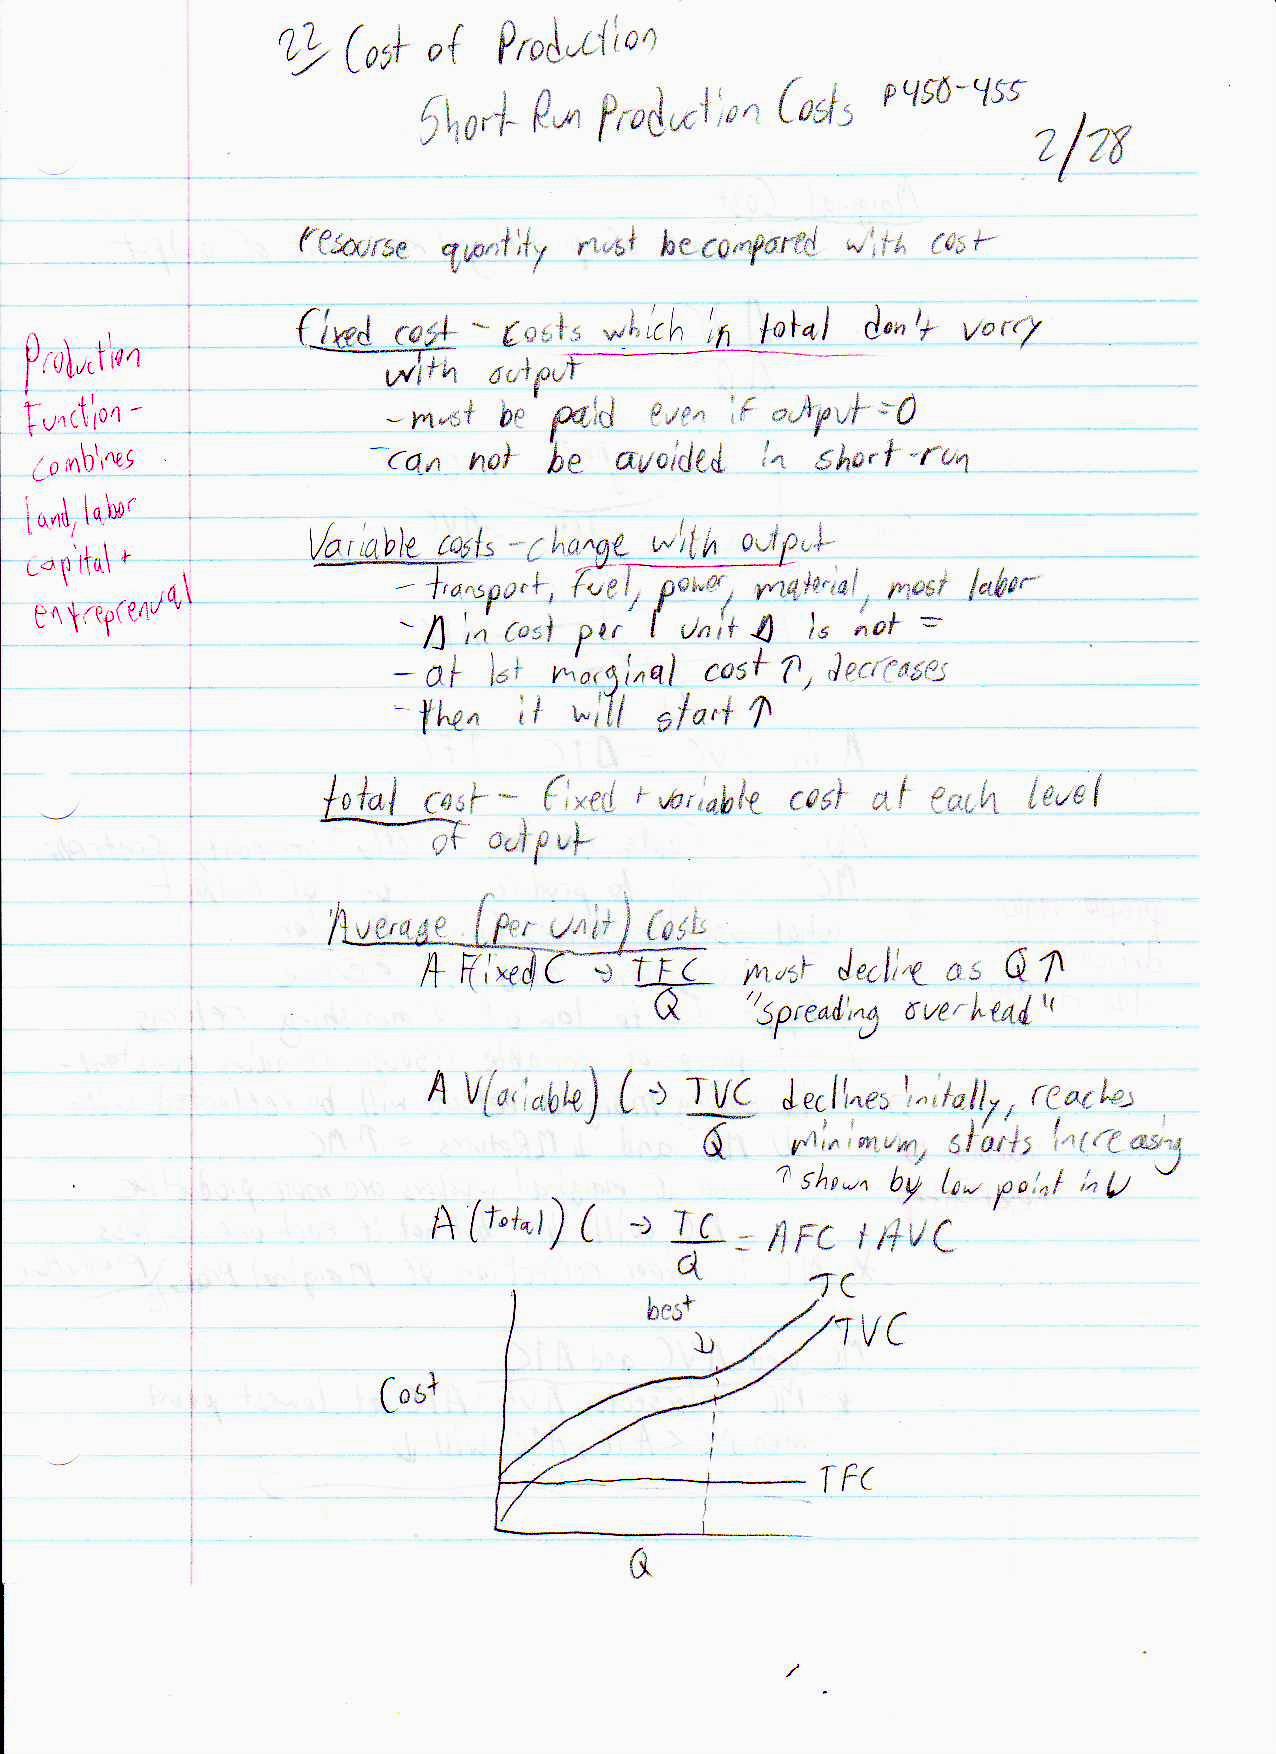 22 Cost of Production
Short Run Production Costs p450-455
2/28
resourse quantity must be compared with cost
fixed cost - costs which in total don't vorry
with output
- must be paid even if output = 0
- can not be avoided in short-run
Production
Function -
combines
land, labor
capital +
entreprenual
Variable costs - change with output
- transport, fuel, power, material, most labor
- Δ in cost per 1 unit Δ is not =
- at 1st marginal cost ↑, decreases
- then it will start ↑
total cost - fixed + variable cost at each level
of output
Average (per unit) Costs
A Fixed C → TFC/Q must decline as Q ↑
"spreading overhead"
A V(ariable) C → TVC/Q declines initally, reaches
minimum, starts increasing
↑ shown by low point in U
A (total) C → TC/Q = AFC + AVC
TC
best
TVC
Cost
TFC
Q